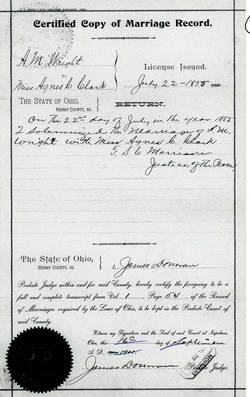 Certified Copy of Marriage Record.
A. M. Wright
To
Miss Agnes C. Clark
License Issued.
July 22 - 1885
THE STATE OF OHIO,
HENRY COUNTY, SS.
RETURN.
On the 22nd day of July in the year 1885
I Solemnized the Marriage of A. M.
Wright with Miss Agnes C. Clark
S. C. Morrison
Justice of the Peace
The State of Ohio,
HENRY COUNTY, SS.
I, James Donovan
Probate Judge within and for said County, hereby certify the foregoing to be a
full and complete transcript from Vol. 1 Page 54, of the Record
of Marriages required by the Laws of Ohio, to be kept in the Probate Court of
said County.
Witness my Signature and the Seal of said Court at Napoleon,
Ohio, this 16 day of September
A. D.
James Donovan
Judge.